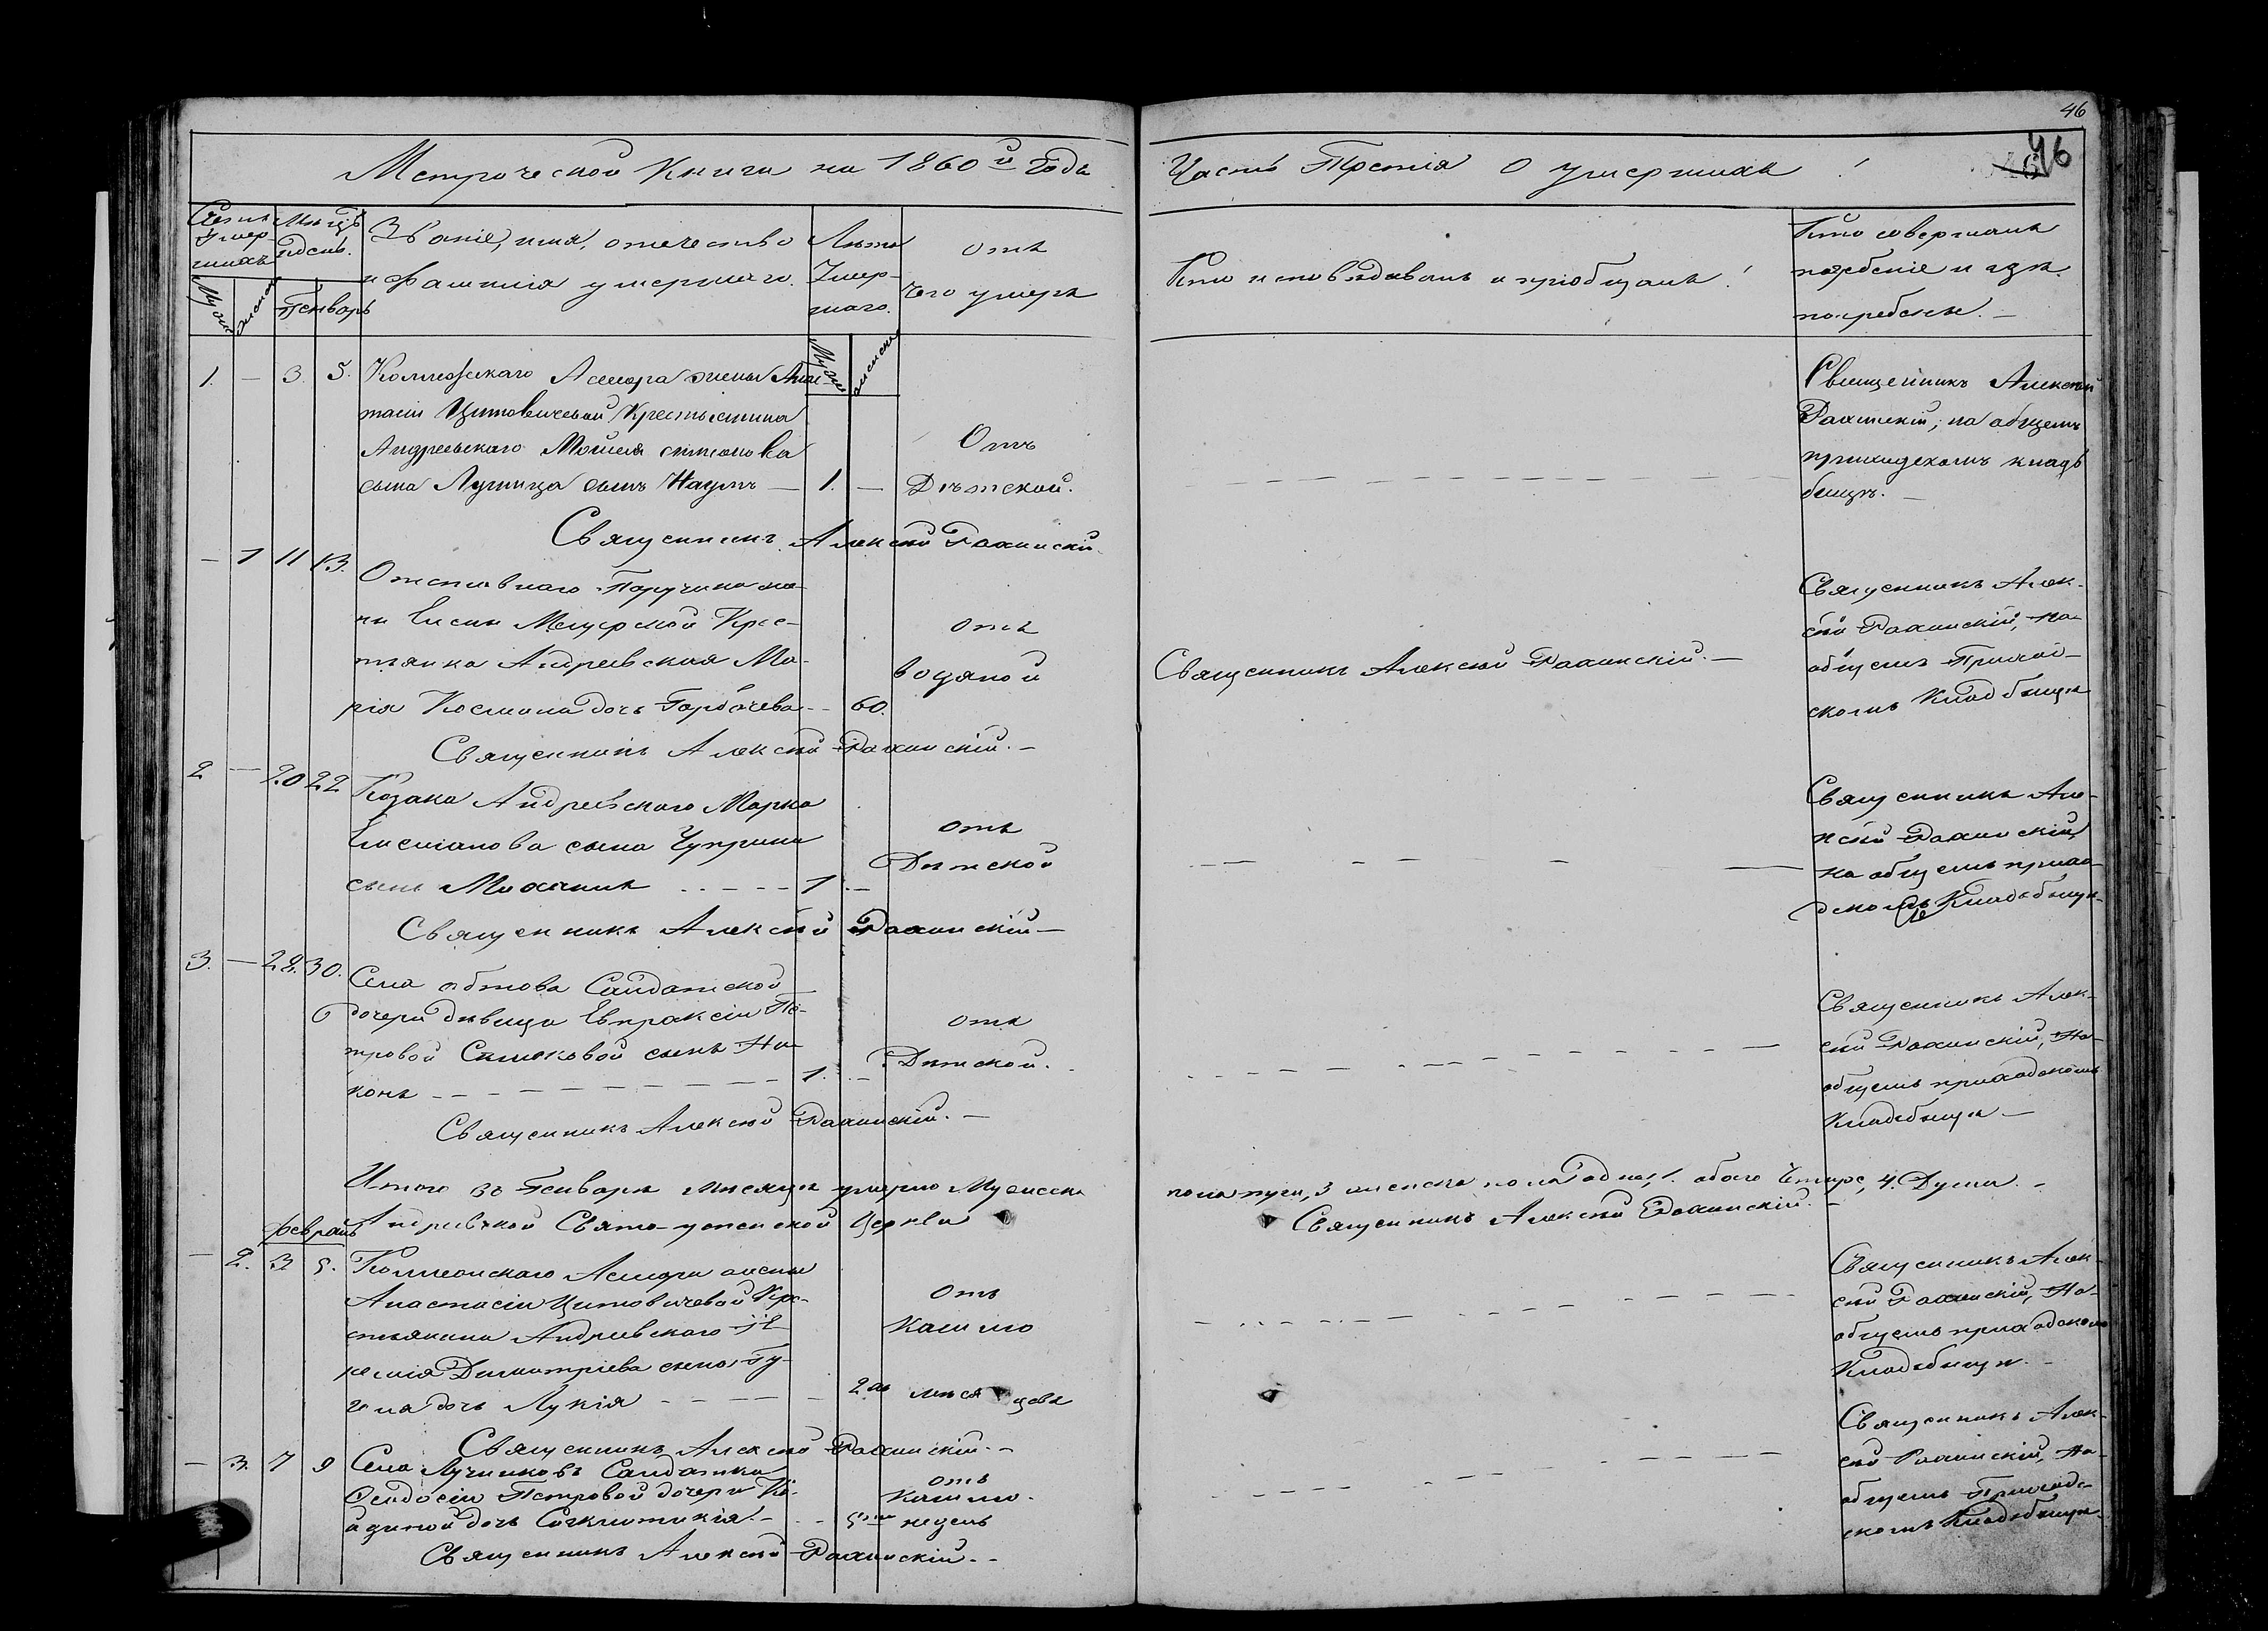 46
46
Метрической Книги на 1860й Годъ
Часть Третія О умершихъ
Счетъ умершихъ
Мѣсяцъ и день.
Званіе, имя, отечество
и Фамилія умершаго.
Лѣта
Умер-
шаго.
отъ
чего умеръ
Кто исповѣдывалъ и пріобщалъ
Кто совершалъ
погребеніе и гдѣ
погребены.
Муж
женск
Генварь
Муж
женск
1. — 3. 5. Коллежскаго Асесора жены Анас-
тасіи Цитовичевой Крестьянина
Андреевскаго Моисея
сына сынъ Наумъ — 1. —
Отъ
Дѣтской.
Священникъ Алексѣй
Рахинскій, на общемъ
приходскомъ кладъ
бищѣ.
Священникъ Алексѣй Рахинскій.
— 1 11 13.
Отставнаго Поручика
Мещерской Крес-
тьянка Андреевская Ма-
рія Космина дочь Горбачева — 60.
отъ
водяной
Священникъ Алексѣй Рахинскій. —
Священникъ Алек-
сѣй Рахинскій, на
общемъ Приход-
скомъ Кладбищѣ
Священникъ Алексѣй Рахинскій. —
2 — 20 22
Козака Андреевскаго Марка
сына Чуприны
сынъ Михаилъ — 1. —
отъ
Дѣтской
Священникъ Але-
ксѣй Рахинскій,
на общемъ прихо-
дскомъ Кладбищѣ.
Священникъ Алексѣй Рахинскій —
3. — 28. 30.
Села Обтова Салдатской
дочери дѣвицы Евпраксіи Пе-
тровой сынъ Ни-
конъ — 1. —
отъ
Дѣтской.
Священникъ Алек-
сѣй Рахинскій, На
общемъ приходскомъ
Кладбищѣ —
Священникъ Алексѣй Рахинскій. —
Итого въ Генварѣ мѣсяцѣ умерло Мужеска
пола три, 3 женска пола одна, 1. обоего Четыре, 4. Души. —
Андреевской Свято-успенской Церкви
Священникъ Алексѣй Рахинскій. —
Февраль
— 2. 3 5. Коллежскаго Асесора жены
Анастасіи Цитовичевой Кре-
стьянина Андреевскаго Іе-
ремія Димитріева сына
дочь Лукія — 2хъ мѣсяцевъ
Отъ
Кашлю
Священникъ Алек-
сѣй Рахинскій, На
общемъ приходскомъ
Кладбищѣ. —
Священникъ Алексѣй Рахинскій. —
— 3. 7 9 Села Лучниковъ Салдатки
Феодосіи Петровой дочери
дочь Синклитикія — 5ти недель
отъ
Кашлю.
Священникъ Алек-
сѣй Рахинскій, На
общемъ Приход-
скомъ Кладбищѣ
Священникъ Алексѣй Рахинскій. —